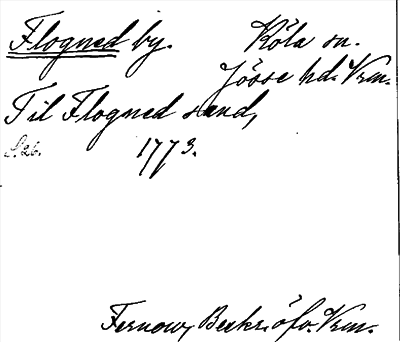 Flogned by. Köla sn.
Jösse hd. Vrm.
Til Flogned sund,
S. 26. 1773.
Fernow, Beskr. öfv. Vrm.